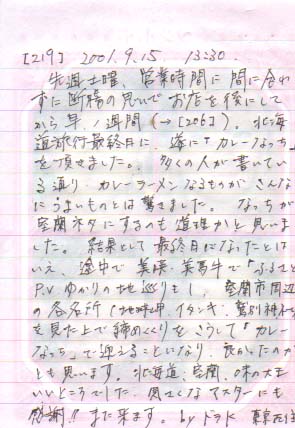 [219] 2001.9.15. 13:30.
先週土曜、営業時間に間に合わ
ずに断腸の思いでお店を後にして
から早1週間(→[206])。北海
道旅行最終日に、遂に「カレーなっち」
を頂きました。多くの人が書いてい
る通り カレーラーメンなるものが こんな
にうまいものとは驚きました。なっちが
室蘭ネタにするのも道理かと思いま
した。結果として最終日になったとは
いえ、途中で美瑛・美馬牛で「ふるさと」
P.V.ゆかりの地巡りもし、室蘭市周辺
の各名所(地球岬、イタンキ、鷲別神社)
を見た上で締めくくりをこうして「カレー
なっち」で迎えることになり、良かったのか
とも思います。北海道・室蘭、味の大王
いいところでした。気さくなマスターにも
感謝!! また来ます。by ドラK 東京在住